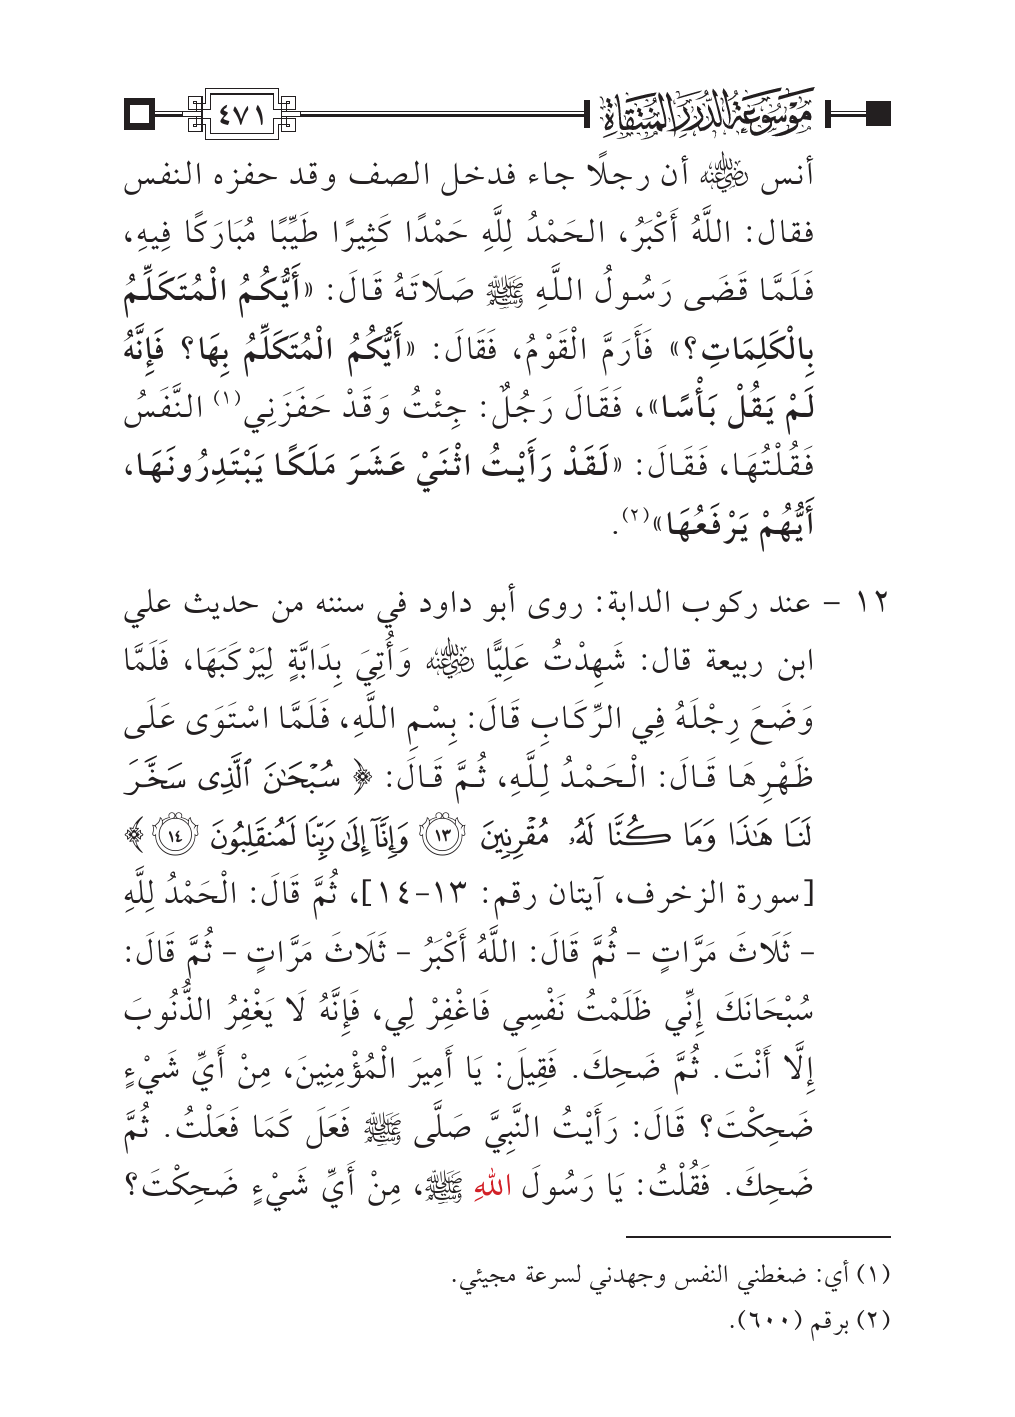 موسوعة الدرر المنتقاة
٤٧١
أنس رضي الله عنه أن رجلًا جاء فدخل الصف وقد حفزه النفس
فقال: اللَّهُ أَكْبَرُ، الحَمْدُ لِلَّهِ حَمْدًا كَثِيرًا طَيِّبًا مُبَارَكًا فِيهِ،
فَلَمَّا قَضَى رَسُولُ اللَّهِ ﷺ صَلَاتَهُ قَالَ: «أَيُّكُمُ الْمُتَكَلِّمُ
بِالْكَلِمَاتِ؟» فَأَرَمَّ الْقَوْمُ، فَقَالَ: «أَيُّكُمُ الْمُتَكَلِّمُ بِهَا؟ فَإِنَّهُ
لَمْ يَقُلْ بَأْسًا»، فَقَالَ رَجُلٌ: جِئْتُ وَقَدْ حَفَزَنِي(١) النَّفَسُ
فَقُلْتُهَا، فَقَالَ: «لَقَدْ رَأَيْتُ اثْنَيْ عَشَرَ مَلَكًا يَبْتَدِرُونَهَا،
أَيُّهُمْ يَرْفَعُهَا»(٢).
١٢ - عند ركوب الدابة: روى أبو داود في سننه من حديث علي
ابن ربيعة قال: شَهِدْتُ عَلِيًّا رضي الله عنه وَأُتِيَ بِدَابَّةٍ لِيَرْكَبَهَا، فَلَمَّا
وَضَعَ رِجْلَهُ فِي الرِّكَابِ قَالَ: بِسْمِ اللَّهِ، فَلَمَّا اسْتَوَى عَلَى
ظَهْرِهَا قَالَ: الْحَمْدُ لِلَّهِ، ثُمَّ قَالَ: ﴿ سُبْحَٰنَ ٱلَّذِى سَخَّرَ
لَنَا هَٰذَا وَمَا كُنَّا لَهُۥ مُقْرِنِينَ ١٣ وَإِنَّآ إِلَىٰ رَبِّنَا لَمُنقَلِبُونَ ١٤ ﴾
[سورة الزخرف، آيتان رقم: ١٣-١٤]، ثُمَّ قَالَ: الْحَمْدُ لِلَّهِ
- ثَلَاثَ مَرَّاتٍ - ثُمَّ قَالَ: اللَّهُ أَكْبَرُ - ثَلَاثَ مَرَّاتٍ - ثُمَّ قَالَ:
سُبْحَانَكَ إِنِّي ظَلَمْتُ نَفْسِي فَاغْفِرْ لِي، فَإِنَّهُ لَا يَغْفِرُ الذُّنُوبَ
إِلَّا أَنْتَ. ثُمَّ ضَحِكَ. فَقِيلَ: يَا أَمِيرَ الْمُؤْمِنِينَ، مِنْ أَيِّ شَيْءٍ
ضَحِكْتَ؟ قَالَ: رَأَيْتُ النَّبِيَّ صَلَّى ﷺ فَعَلَ كَمَا فَعَلْتُ. ثُمَّ
ضَحِكَ. فَقُلْتُ: يَا رَسُولَ اللهِ ﷺ، مِنْ أَيِّ شَيْءٍ ضَحِكْتَ؟
(١) أي: ضغطني النفس وجهدني لسرعة مجيئي.
(٢) برقم (٦٠٠).